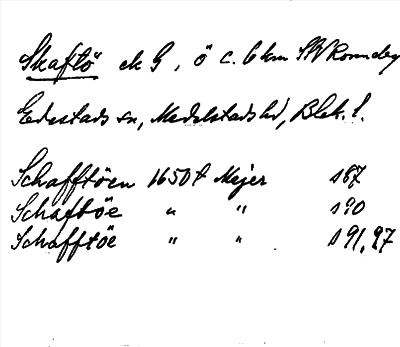 Skaftö ek G, ö c. 6 km SV Ronneby
Edestads sn, Medelstads hd, Blek. l.
Schafftöen 1650t Mejer s 87
Schaftöe " " s 90
Schafftöe " " s 91, 97